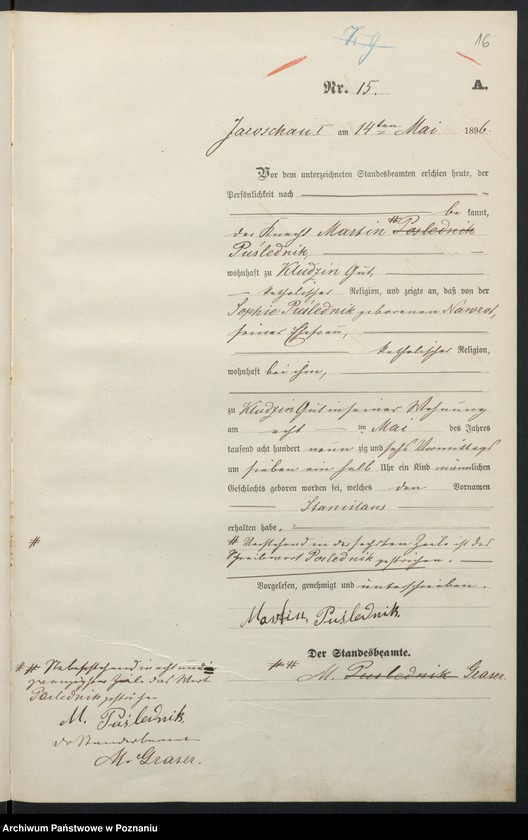 16
Nr. 15.
A.
Jaroschau I am 14ten Mai 1896.
Vor dem unterzeichneten Standesbeamten erschien heute, der
Persönlichkeit nach
be kannt,
der Knecht Martin # Poslednik
Puślednik,
wohnhaft zu Kludzin Gut,
katholischer Religion, und zeigte an, daß von der
Sophie Puślednik geborenen Nawrot,
seiner Ehefrau,
katholischer Religion,
wohnhaft bei ihm,
zu Kludzin Gut in seiner Wohnung
am acht im Mai des Jahres
tausend acht hundert neun zig und sechs Vormittags
um sieben ein halb Uhr ein Kind männlichen
Geschlechts geboren worden sei, welches den Vornamen
Stanislaus
erhalten habe.
# Vorstehend in der sechsten Zeile ist das
Schreibwort Poslednik gestrichen.
Vorgelesen, genehmigt und unterschrieben.
Martin Puślednik.
Der Standesbeamte.
## M. Puslednik Graser.
#
## Nebenstehend in acht und
zwanzigster Zeile das Wort
Puslednik gestrichen
M. Puślednik
Der Standesbeamte
M. Graser.
Archiwum Państwowe w Poznaniu